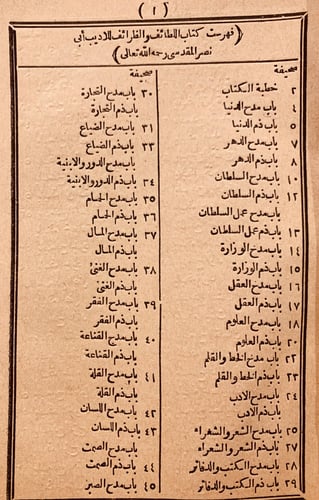 (١)
(فهرست كتاب اللطائف والظرائف للاديب أبى
نصر المقدسى رحمه الله تعالى)
صحيفة
٢ خطبة الكتاب
٤ باب مدح الدنيا
٥ باب ذم الدنيا
٧ باب مدح الدهر
٨ باب ذم الدهر
١٠ باب مدح السلطان
١٢ باب ذم السلطان
باب مدح عمل السلطان
١٣ باب ذم عمل السلطان
١٤ باب مدح الوزارة
١٥ باب ذم الوزارة
١٦ باب مدح العقل
١٧ باب ذم العقل
١٨ باب مدح العلوم
٢٠ باب ذم العلوم
٢٢ باب مدح الخط والقلم
٢٣ باب ذم الخط والقلم
٢٤ باب مدح الادب
باب ذم الادب
٢٥ باب مدح الشعر والشعراء
٢٧ باب ذم الشعر والشعراء
٢٨ باب مدح الكتب والدفاتر
٢٩ باب ذم الكتب والدفاتر
صحيفة
٣٠ باب مدح التجارة
باب ذم التجارة
٣١ باب مدح الضياع
٣٣ باب ذم الضياع
باب مدح الدور والابنية
٣٤ باب ذم الدور والابنية
٣٥ باب مدح الحمام
٣٦ باب ذم الحمام
٣٧ باب مدح المال
باب ذم المال
٣٨ باب مدح الغنى
باب ذم الغنى
٣٩ باب مدح الفقر
باب ذم الفقر
٤٠ باب مدح القناعة
باب ذم القناعة
٤١ باب مدح القلة
باب ذم القلة
٤٢ باب مدح اللسان
٤٣ باب ذم اللسان
باب مدح الصمت
٤٤ باب ذم الصمت
٤٥ باب مدح الصبر